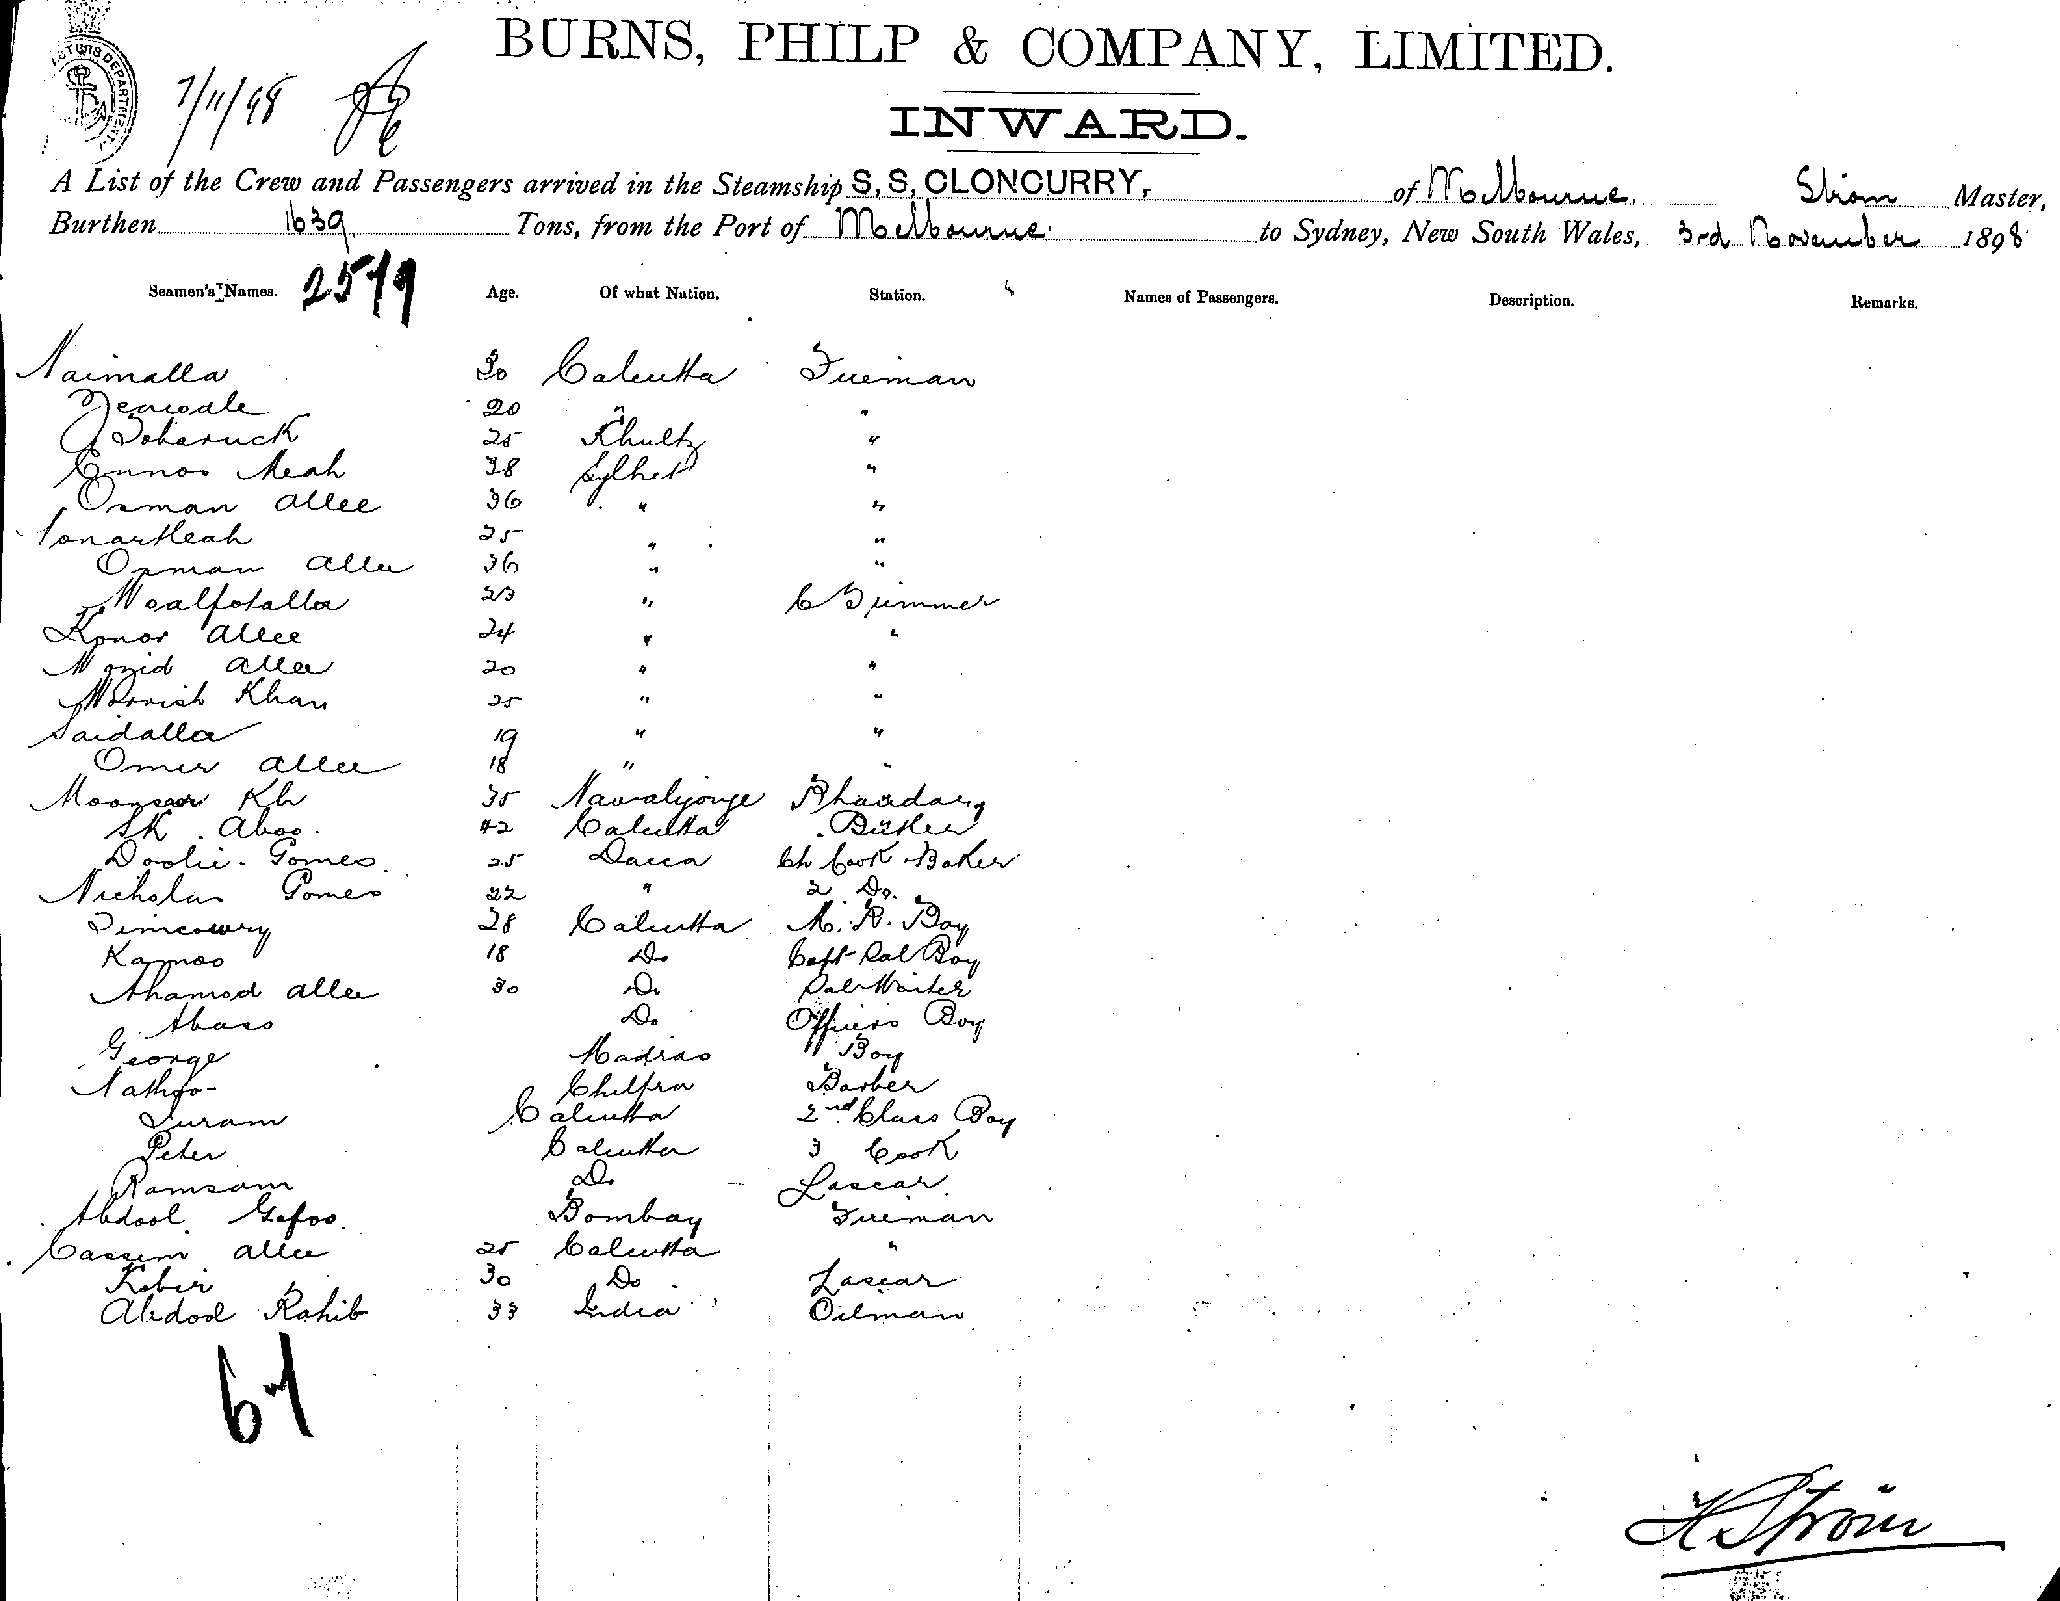 BURNS, PHILP & COMPANY, LIMITED.
CUSTOMS DEPARTMENT
7/11/98
INWARD.
A List of the Crew and Passengers arrived in the Steamship S.S. CLONCURRY, of Melbourne. Ström Master,
Burthen 1639 Tons, from the Port of Melbourne to Sydney, New South Wales, 3rd November 1898
Seamen's Names. 2519 Age. Of what Nation. Station. Names of Passengers. Description. Remarks.
Naimalla 30 Calcutta Fireman
20 " "
25 "
Ennos Meah 38 Sylhet "
Osman Allee 36 " "
25 " "
Osman Allee 36 " "
23 " C Trimmer
Konor Allee 24 " "
Mozid Allee 20 " "
Khan 25 " "
Saidalla 19 " "
Omer Allee 18 " "
35
SK. Aboo. 42 Calcutta Butler
Doolie Gomes 25 Dacca Ch Cook Baker
Nicholas Gomes 22 " 2 Do.
Timcowry 28 Calcutta M. R. Boy
Kamoo 18 Do Capt Sal Boy
Ahamod Allee 30 Do Sal Waiter
Abass Do Officers Boy
George Madras Boy
Nathoo Barber
Suram Calcutta 2nd Class Boy
Peter Calcutta 3 Cook
Ramsam Do Lascar
Abdool Gafoo. Bombay Fireman
Cassim Allee 25 Calcutta "
Kebir 30 Do Lascar
Abdool Rahib 33 India Oilman
67
H Ström